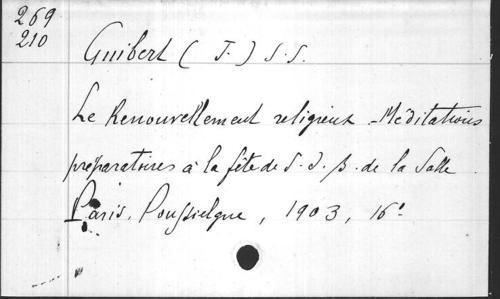 269
210
Guibert (J.) S.S.
Le Renouvellement religieux - Méditations
préparatoires à la fête de S. J. B. de la Salle
Paris, Poussielgue, 1903, 16°